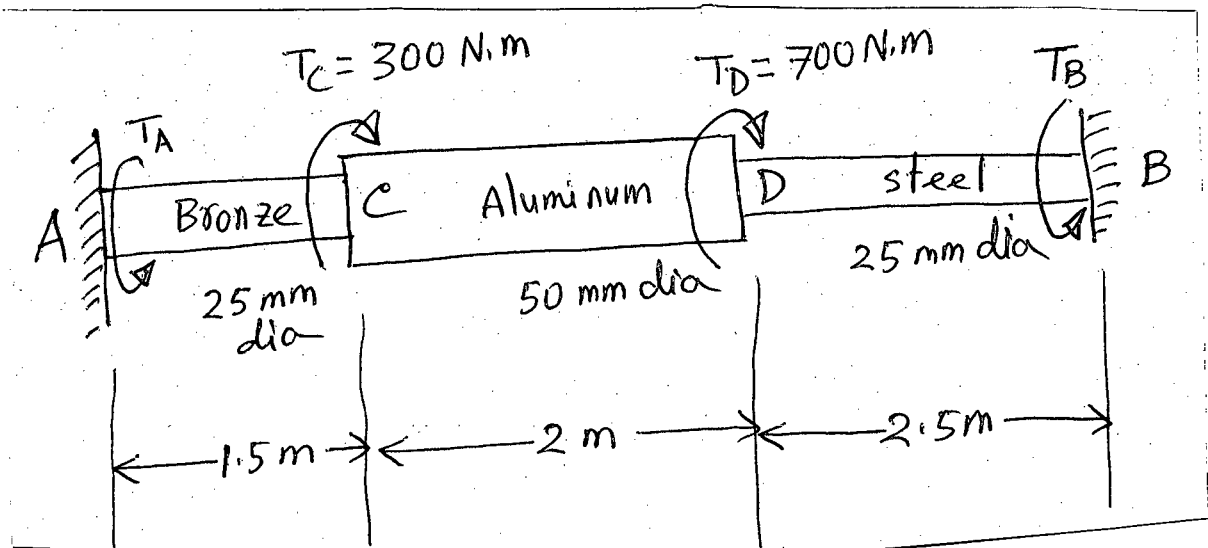 T_C = 300 N.m
T_D = 700 N.m
T_B
T_A
A
Bronze
C
Aluminum
D
steel
B
25 mm dia
50 mm dia
25 mm dia
1.5 m
2 m
2.5 m